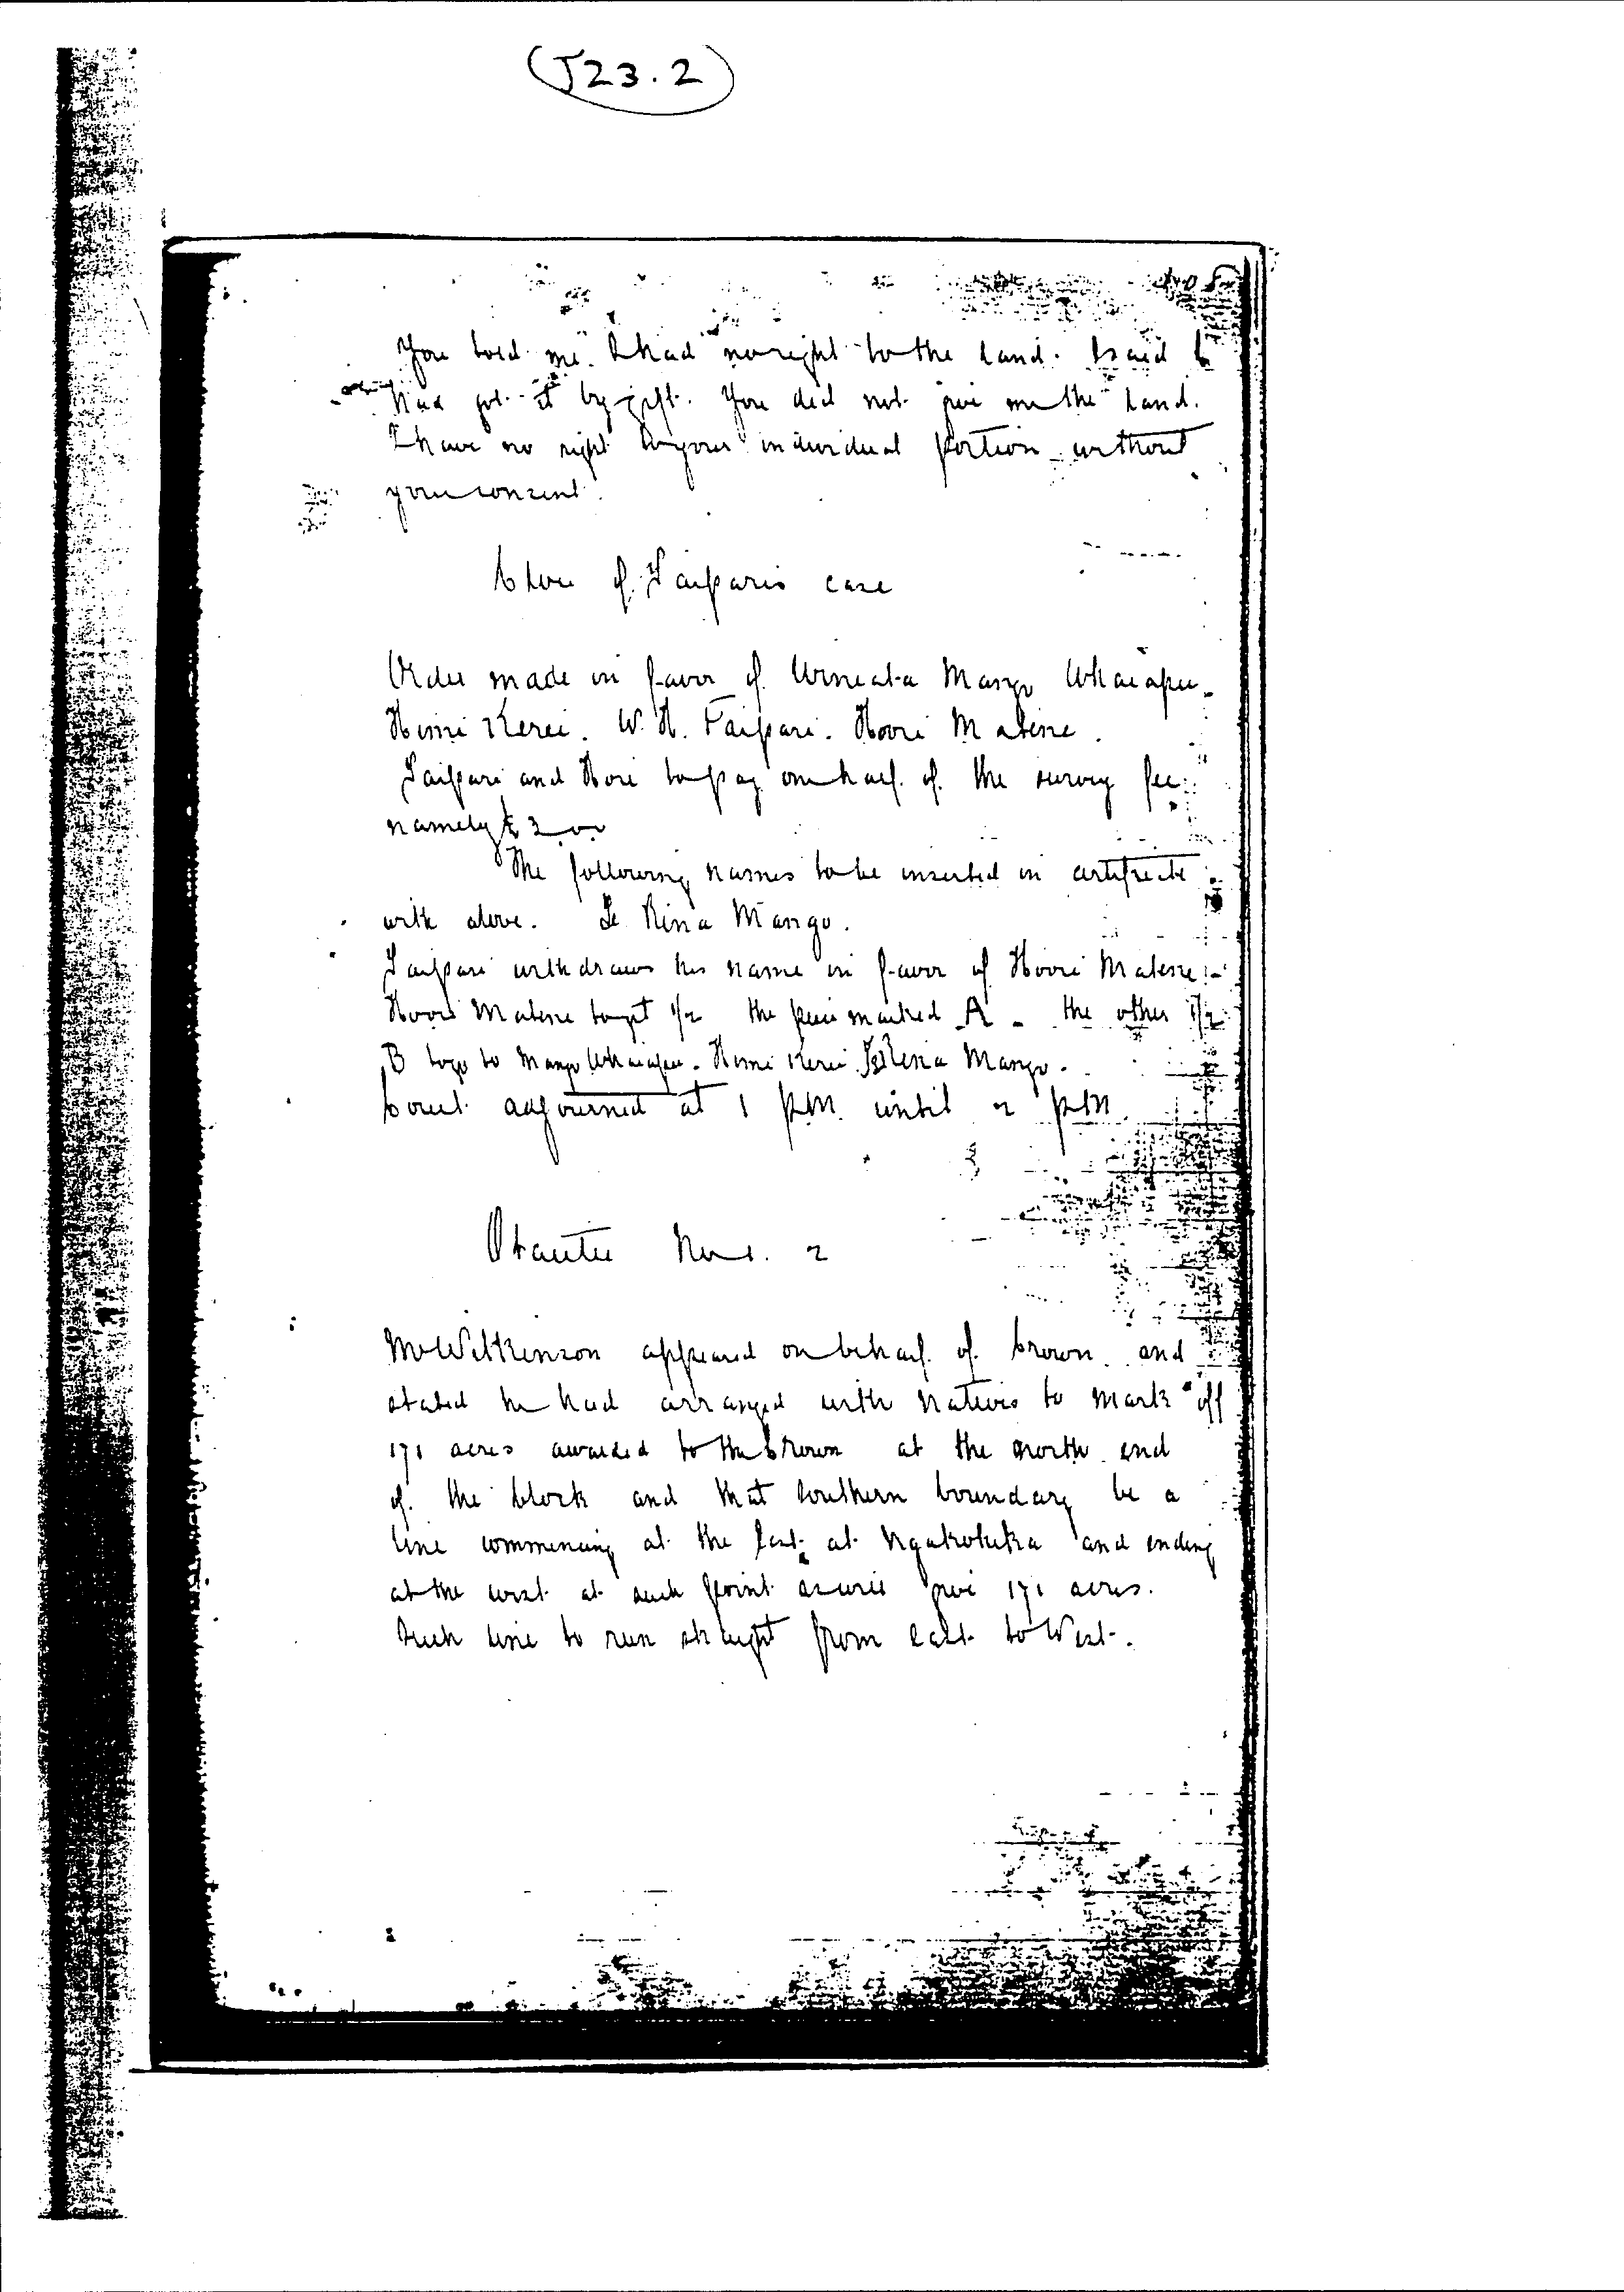 (J23.2)
405
You told me I had no right to the land. I said I
had got it by gift. You did not give me the land.
I have no right to your individual portion without
your consent.
Close of Taipari's case
Order made in favor of Mango Whaiapu.
Himi Kerei. W. H. Taipari. Hoori Matene.
Taipari and Hori to pay one half of the survey fee
namely £3
The following names to be inserted in certificate
with above. Te Rina Mango.
Taipari withdraws his name in favor of Hoori Matene
Hoori Matene to get 1/2 the piece marked A - the other 1/2
B to go to Mango Whaiapu. Himi Kerei. Te Rina Mango.
Court adjourned at 1 P.M. until 2 P.M.
No. 2
Mr Wilkinson appeared on behalf of Crown and
stated he had arranged with natives to mark off
171 acres awarded to the Crown at the north end
of the block and that southern boundary be a
line commencing at the East at Ngakotuka and ending
at the west at such point as will give 171 acres.
Such line to run straight from East to West.